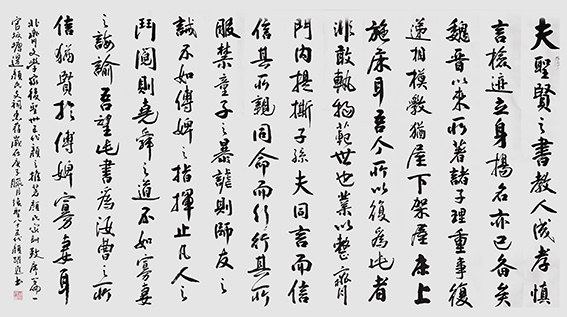 夫聖賢之書教人成孝慎
言檢迹立身揚名亦已備矣
魏晉以來所著諸子理重事復
遞相模教猶屋下架屋床上
施床耳吾今所以復為此者
非敢軌物範世也業以整齊
門內提撕子孫夫同言而信
信其所親同命而行行其所
服禁童子之暴謔則師友之
誡不如傅婢之指揮止凡人之
鬥鬩則堯舜之道不如寡妻
之誨諭吾望此書為汝曹之所
信猶賢於傅婢寡妻耳
北齊文學家復聖世五代顏之推著顏氏家訓致序篇一